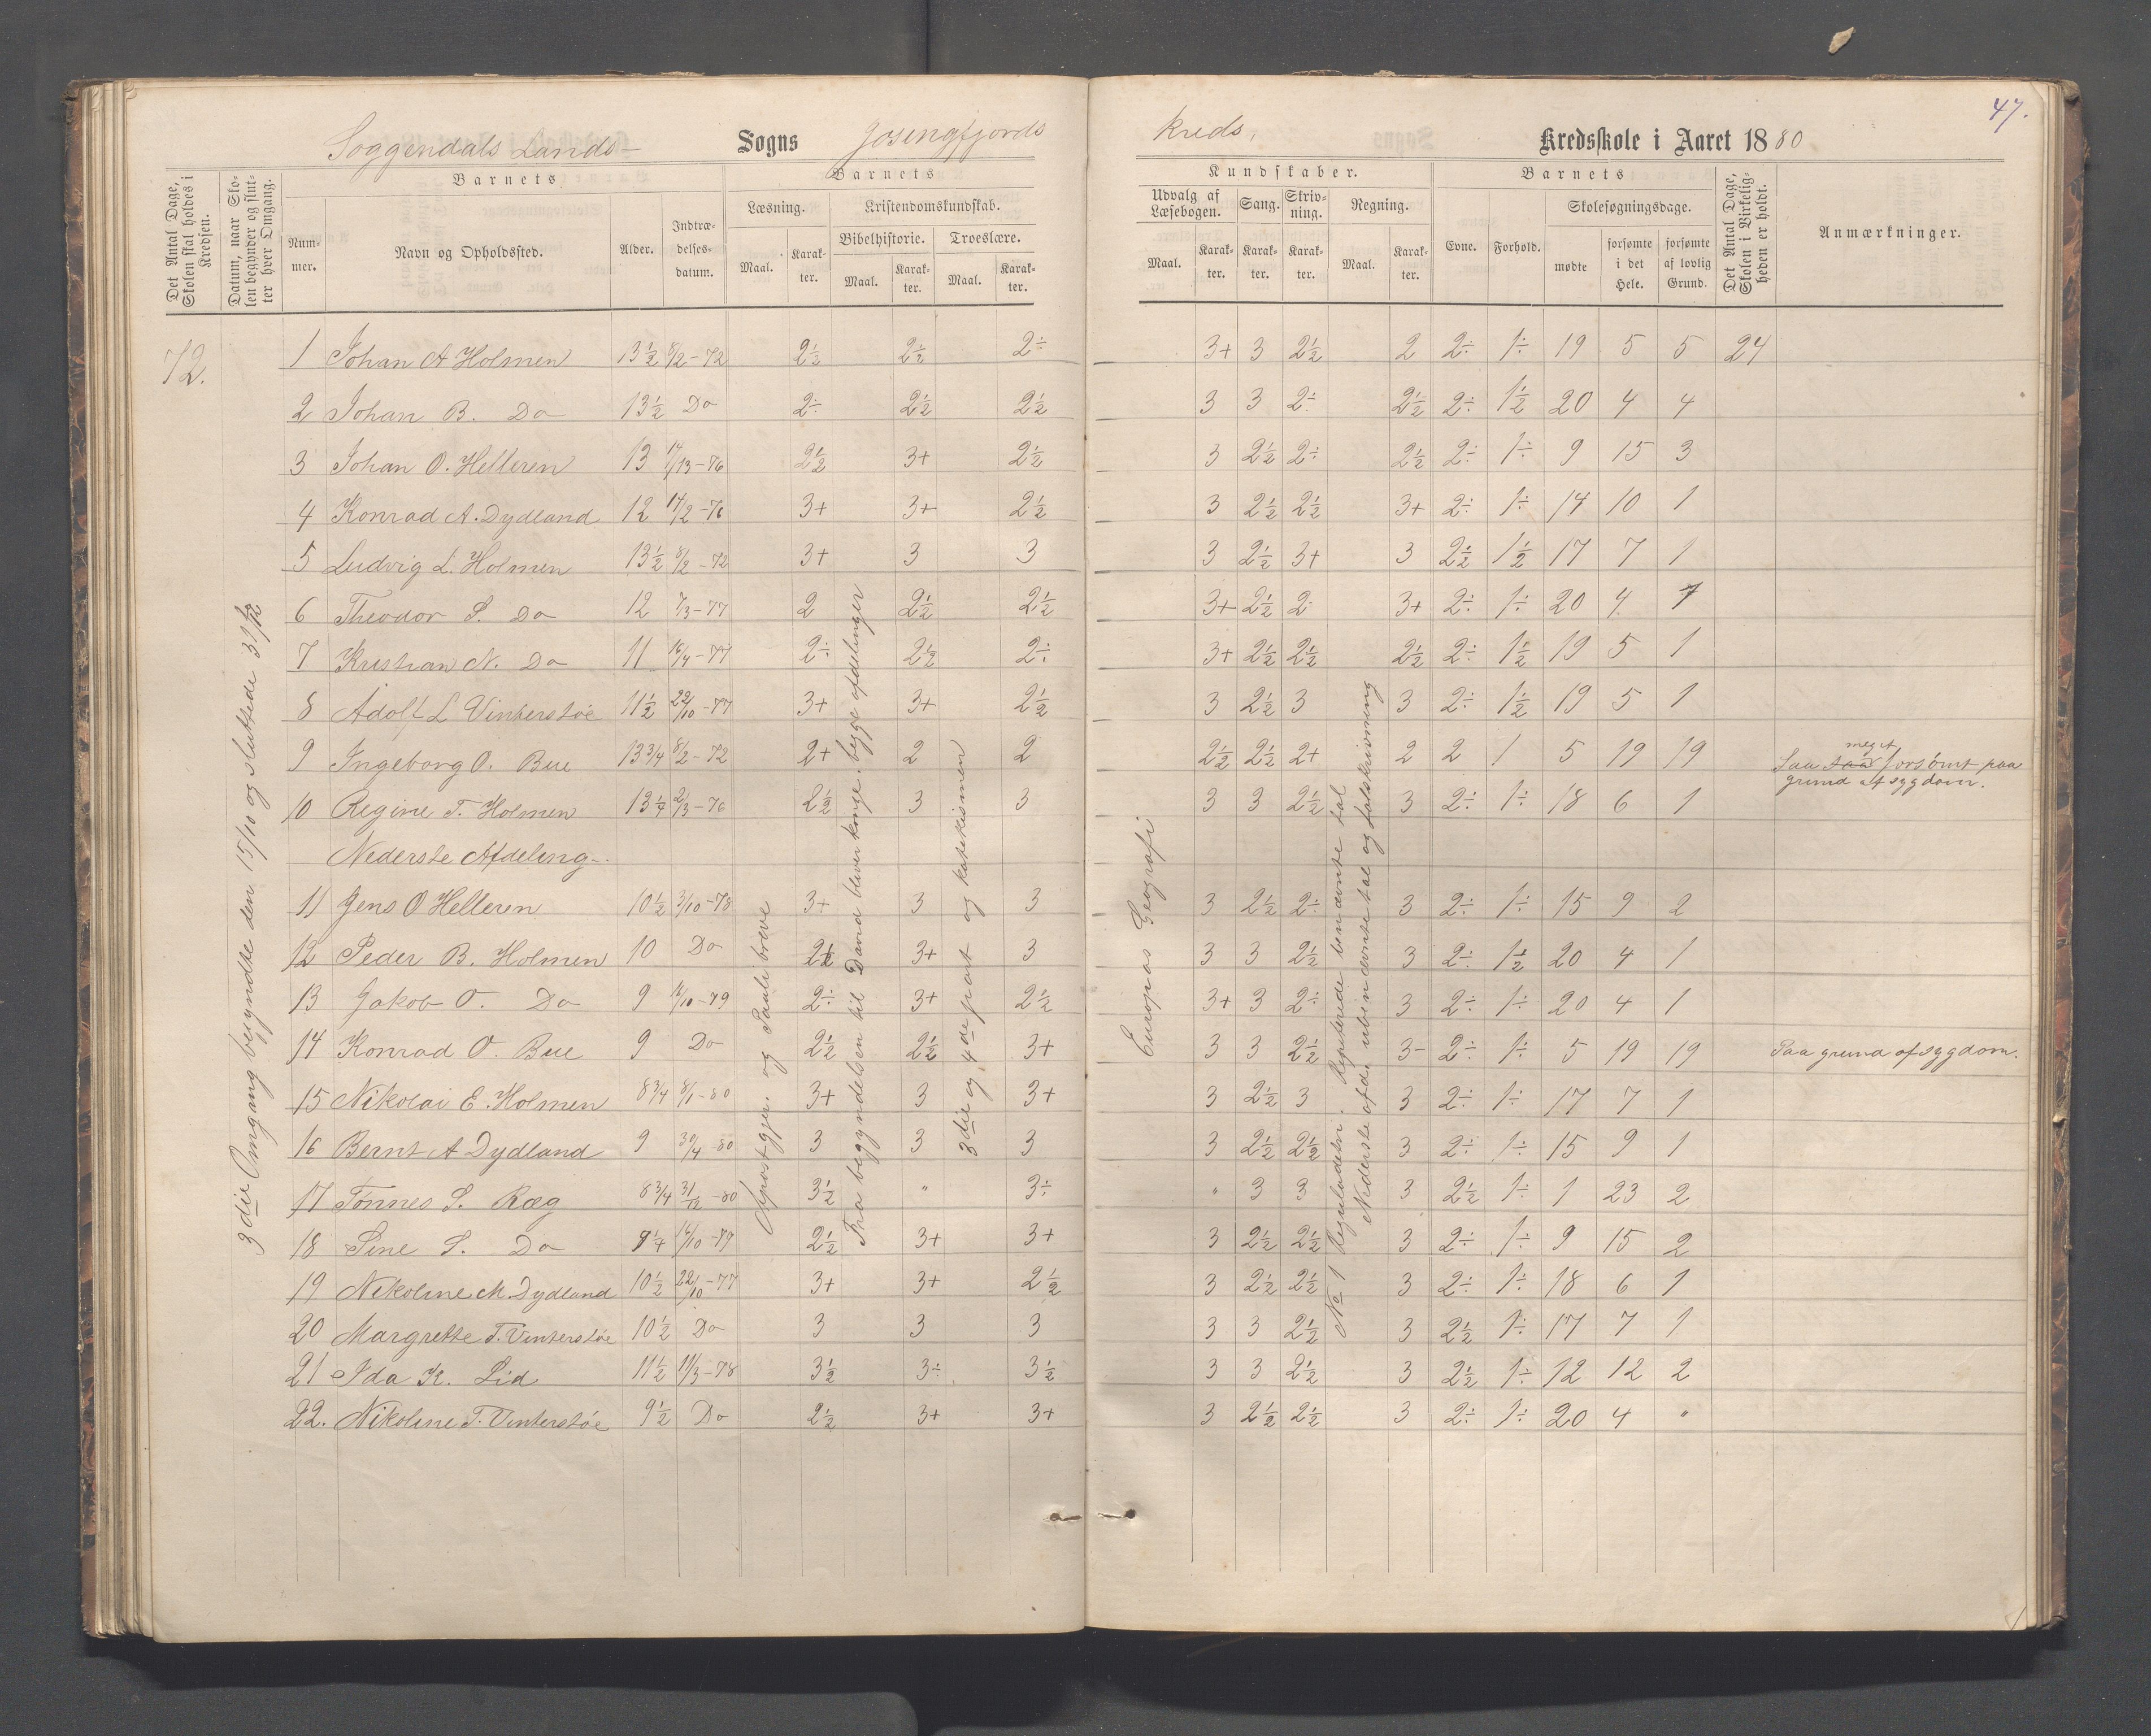 47.
Soggendals Lands- Sogns Josengfjords kreds, Kredsskole i Aaret 1880
Det Antal Dage, Skolen skal holdes i Kredsen.
Datum, naar Skolen begynder og slutter hver Omgang.
Barnets
Nummer.
Navn og Opholdssted.
Alder.
Indtrædelsesdatum.
Barnets
Læsning.
Maal.
Karakter.
Kristendomskundskab.
Bibelhistorie.
Maal.
Karakter.
Troeslære.
Maal.
Karakter.
Kundskaber.
Udvalg af Læsebogen.
Maal.
Karakter.
Sang.
Karakter.
Skrivning.
Karakter.
Regning.
Maal.
Karakter.
Barnets
Evne.
Forhold.
Skolesøgningsdage.
mødte
forsømte i det Hele.
forsømte af lovlig Grund.
Det Antal Dage, Skolen i Virkeligheden er holdt.
Anmærkninger.
72.
3die Omgang begyndte den 15/10 og sluttede 31/12
1 Johan A Holmen 13½ 8/2-72 2½ 2½ 2÷ 3+ 3 2½ 2 2÷ 1÷ 19 5 5 24
2 Johan B. Do 13½ Do 2÷ 2½ 2½ 3 3 2÷ 2½ 2÷ 1½ 20 4 4
3 Johan O. Helleren 13 14/13-76 2½ 3+ 2½ 3 2½ 2÷ 2½ 2÷ 1÷ 9 15 3
4 Konrad A. Dydland 12 14/2-76 3+ 3+ 2½ 3 2½ 2½ 3+ 2÷ 1÷ 14 10 1
5 Ludvig L. Holmen 13½ 8/2-72 3+ 3 3 3 2½ 3+ 3 2½ 1½ 17 7 1
6 Theodor S. Do 12 7/3-77 2 2½ 2½ 3+ 2½ 2 3+ 2÷ 1÷ 20 4 1
7 Kristian N. Do 11 16/4-77 2÷ 2½ 2÷ 3+ 2½ 2½ 2½ 2÷ 1½ 19 5 1
8 Adolf L Vinterstøe 11½ 22/10-77 3+ 3+ 2½ 3 2½ 3 3 2÷ 1½ 19 5 1
9 Ingeborg O. Bue 13¾ 8/2-72 2+ 2 2 2½ 2½ 2+ 2 2 1 5 19 19 Saa meget forsømt paa grund af sygdom.
10 Regine T. Holmen 13¼ 2/3-76 2½ 3 3 3 3 2½ 3 2÷ 1÷ 18 6 1
Nederste Afdeling.
11 Jens O Helleren 10½ 3/10-78 3+ 3 3 3 2½ 2÷ 3 2÷ 1÷ 15 9 2
12 Peder B. Holmen 10 Do 2½ 3+ 3 3 3 2½ 3 2÷ 1½ 20 4 1
13 Jakob O. Do 9 16/10-79 2÷ 3+ 2½ 3+ 3 2÷ 3 2÷ 1÷ 20 4 1
14 Konrad O. Bue 9 Do 2½ 2½ 3+ 3 3 2½ 3- 2÷ 1÷ 5 19 19 Paa grund af sygdom.
15 Nikolai E. Holmen 8¾ 8/1-80 3+ 3 3+ 3 2½ 3 3 2÷ 1÷ 17 7 1
16 Bernt A Dydland 9 30/4-80 3 3 3 3 2½ 2½ 3 2÷ 1÷ 15 9 1
17 Tønnes S. Ræg 8¾ 31/12-80 3½ " 3÷ " 3 3 3 2½ 1÷ 1 23 2
18 Sine S. Do 9¼ 16/10-79 2½ 3+ 3+ 3 2½ 2½ 3 2÷ 1÷ 9 15 2
19 Nikoline M. Dydland 10½ 22/10-77 3+ 3+ 2½ 3 2½ 2½ 3 2÷ 1÷ 18 6 1
20 Margrethe T. Vinterstøe 10½ Do 3 3 3 3 3 2½ 3 2½ 1÷ 17 7 1
21 Ida K. Lid 11½ 11/3-78 3½ 3÷ 3½ 3 3 2½ 3 2½ 1÷ 12 12 2
22. Nikoline T. Vinterstøe 9½ Do 2½ 3+ 3+ 3 2½ 2½ 3 2÷ 1÷ 20 4 "
Apostgjer. og Pauli breve
Fra begyndelsen til David bliver konge. begge afdelinger
3die og 4de part og katekismen
Europas Geografi
No 1 Reguladetri. Repeterede benævnte tal
Nederste afd. ubenævnte tal og talskrivning